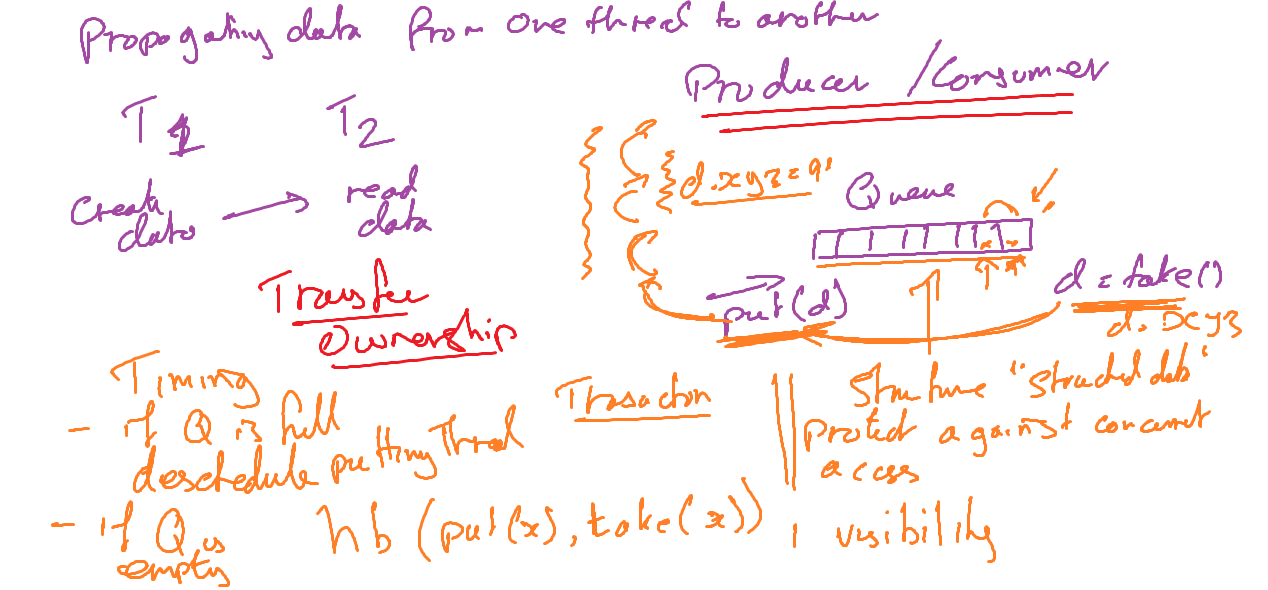 Propagating data from one thread to another
Producer / Consumer
T1
T2
Create data
read data
d.xyz = 9'
Queue
Transfer
Ownership
put(d)
d = take()
d. xyz
Timing
- if Q is full
deschedule putting Thread
- if Q is
empty
Trasaction
Structure "Structed data"
Protect against concurrent
access
hb (put(x), take(x))
visibility